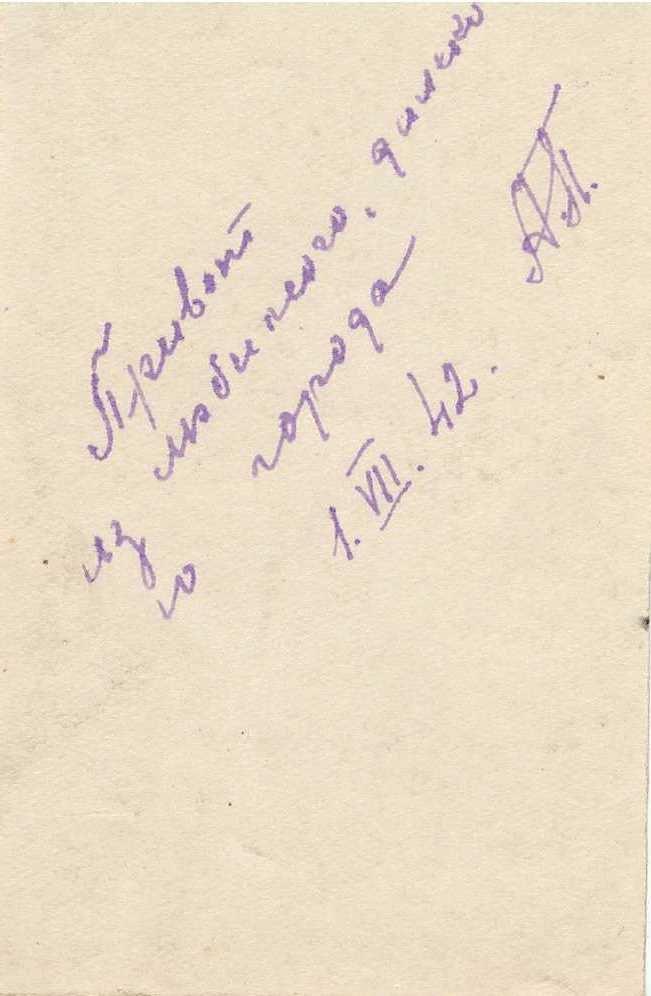 Привет
из любимого, далеко
го города
1. VII. 42.
АП.